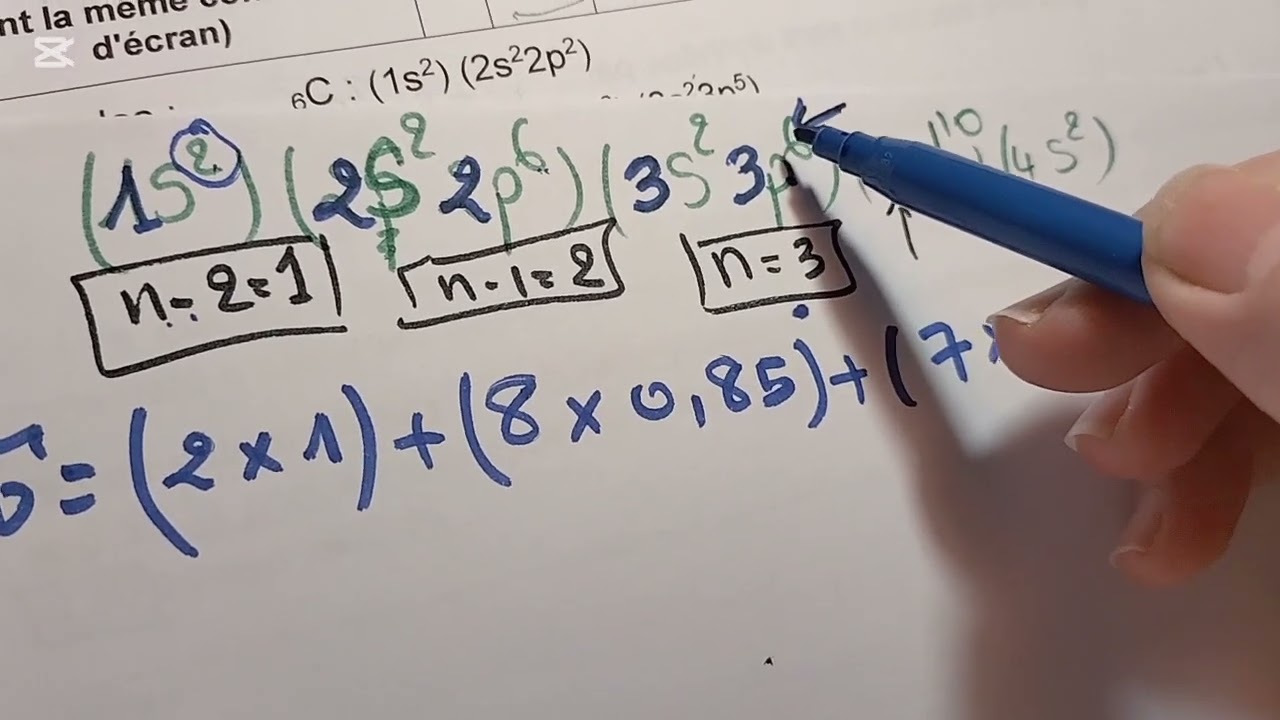 nt la même
d'écran)
₆C : (1s²) (2s²2p²)
(1s²) (2s² 2p⁶) (3s² 3p⁶) (4s²)
n-2=1 n-1=2 n=3
σ = (2 × 1) + (8 × 0,85) + (7 ×